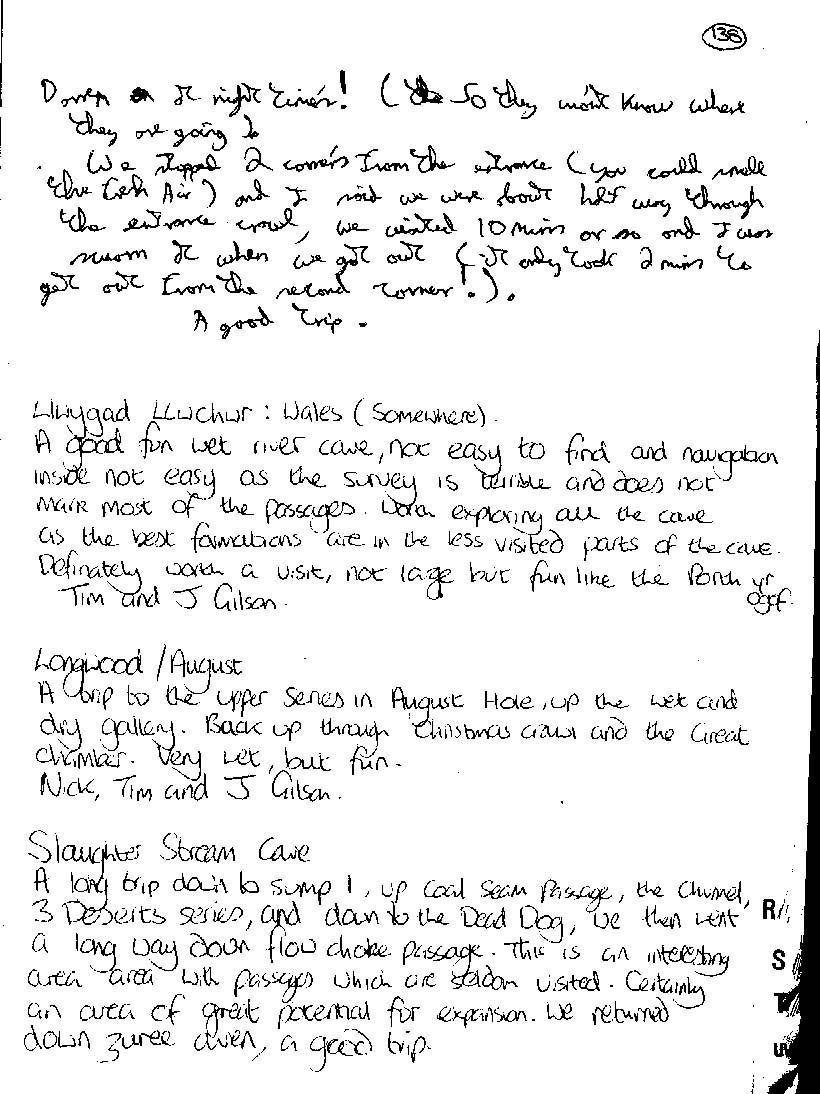 138
Down it right times! (So they won't know where
they are going to
We stopped 2 corners from the entrance (you could smell
the fresh Air) and I said we were about half way through
the entrance crawl, we waited 10 mins or so and I was
sworn it when we got out (it only took 2 mins to
get out from the second corner!).
A good trip.
Llwygad LLwchwr : Wales (Somewhere).
A good fun wet river cave, not easy to find and navigation
inside not easy as the survey is terrible and does not
mark most of the passages. Worth exploring all the cave
as the best formations are in the less visited parts of the cave.
Definately worth a visit, not large but fun like the Porth yr
ogof.
Tim and J Gilson.
Longwood / August
A trip to the upper series in August Hole, up the wet and
dry gallery. Back up through Christmas crawl and the Great
chamber. Very wet, but fun.
Nick, Tim and J Gilson.
Slaughter Stream Cave
A long trip down to sump 1, up Coal Seam Passage, the Chunnel,
3 Deserts series, and down to the Dead Dog, we then went
a long way down flow choke passage. This is an interesting
area area with passages which are seldon visited. Certainly
an area of great potential for expansion. We returned
down zuree aven, a good trip.
R
S
T